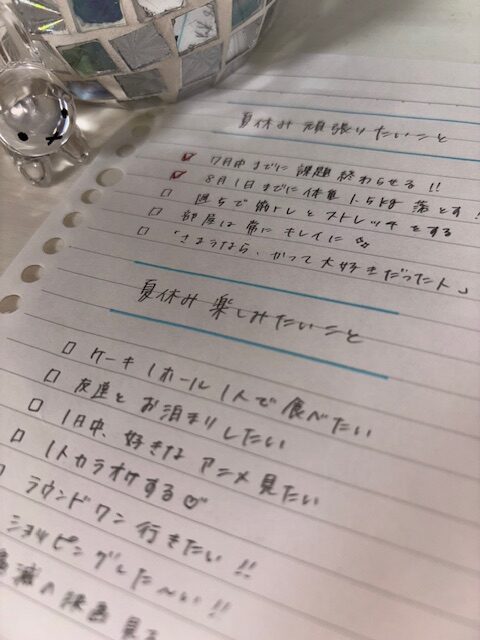 夏休み 頑張りたいこと
7月中までに 課題 終わらせる!!
8月1日までに体重 1.5kg 落とす!
週5で 筋トレとストレッチをする
部屋は常にキレイに
「さようなら、かつて大好きだった人」
夏休み 楽しみたいこと
ケーキ1ホール1人で食べたい
友達とお泊まりしたい
1日中、好きなアニメ見たい
1人カラオケする♡
ラウンドワン行きたい!!
ショッピングした〜い!!
鬼滅の映画 見る